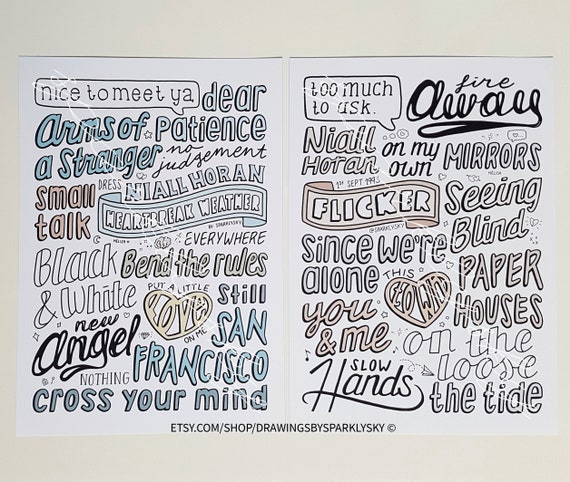 nice to meet ya
dear
Arms of
Patience
a Stranger
no
judgement
small
talk
DRESS
NIALL HORAN
HEARTBREAK WEATHER
@SPARKLYSKY
EVERYWHERE
Black
& White
Bend the rules
PUT A LITTLE
LOVE
ON ME
Still
new
Angel
SAN
FRANCISCO
NOTHING
cross your mind
too much
to ask.
fire
away
Niall
Horan
on my
own
MIRRORS
1st SEPT 1993
FLICKER
@SPARKLYSKY
Seeing
Blind
since we're
alone
THIS
TOWN
PAPER
HOUSES
you
& me
on the
loose
SLOW
Hands
the tide
ETSY.COM/SHOP/DRAWINGSBYSPARKLYSKY ©